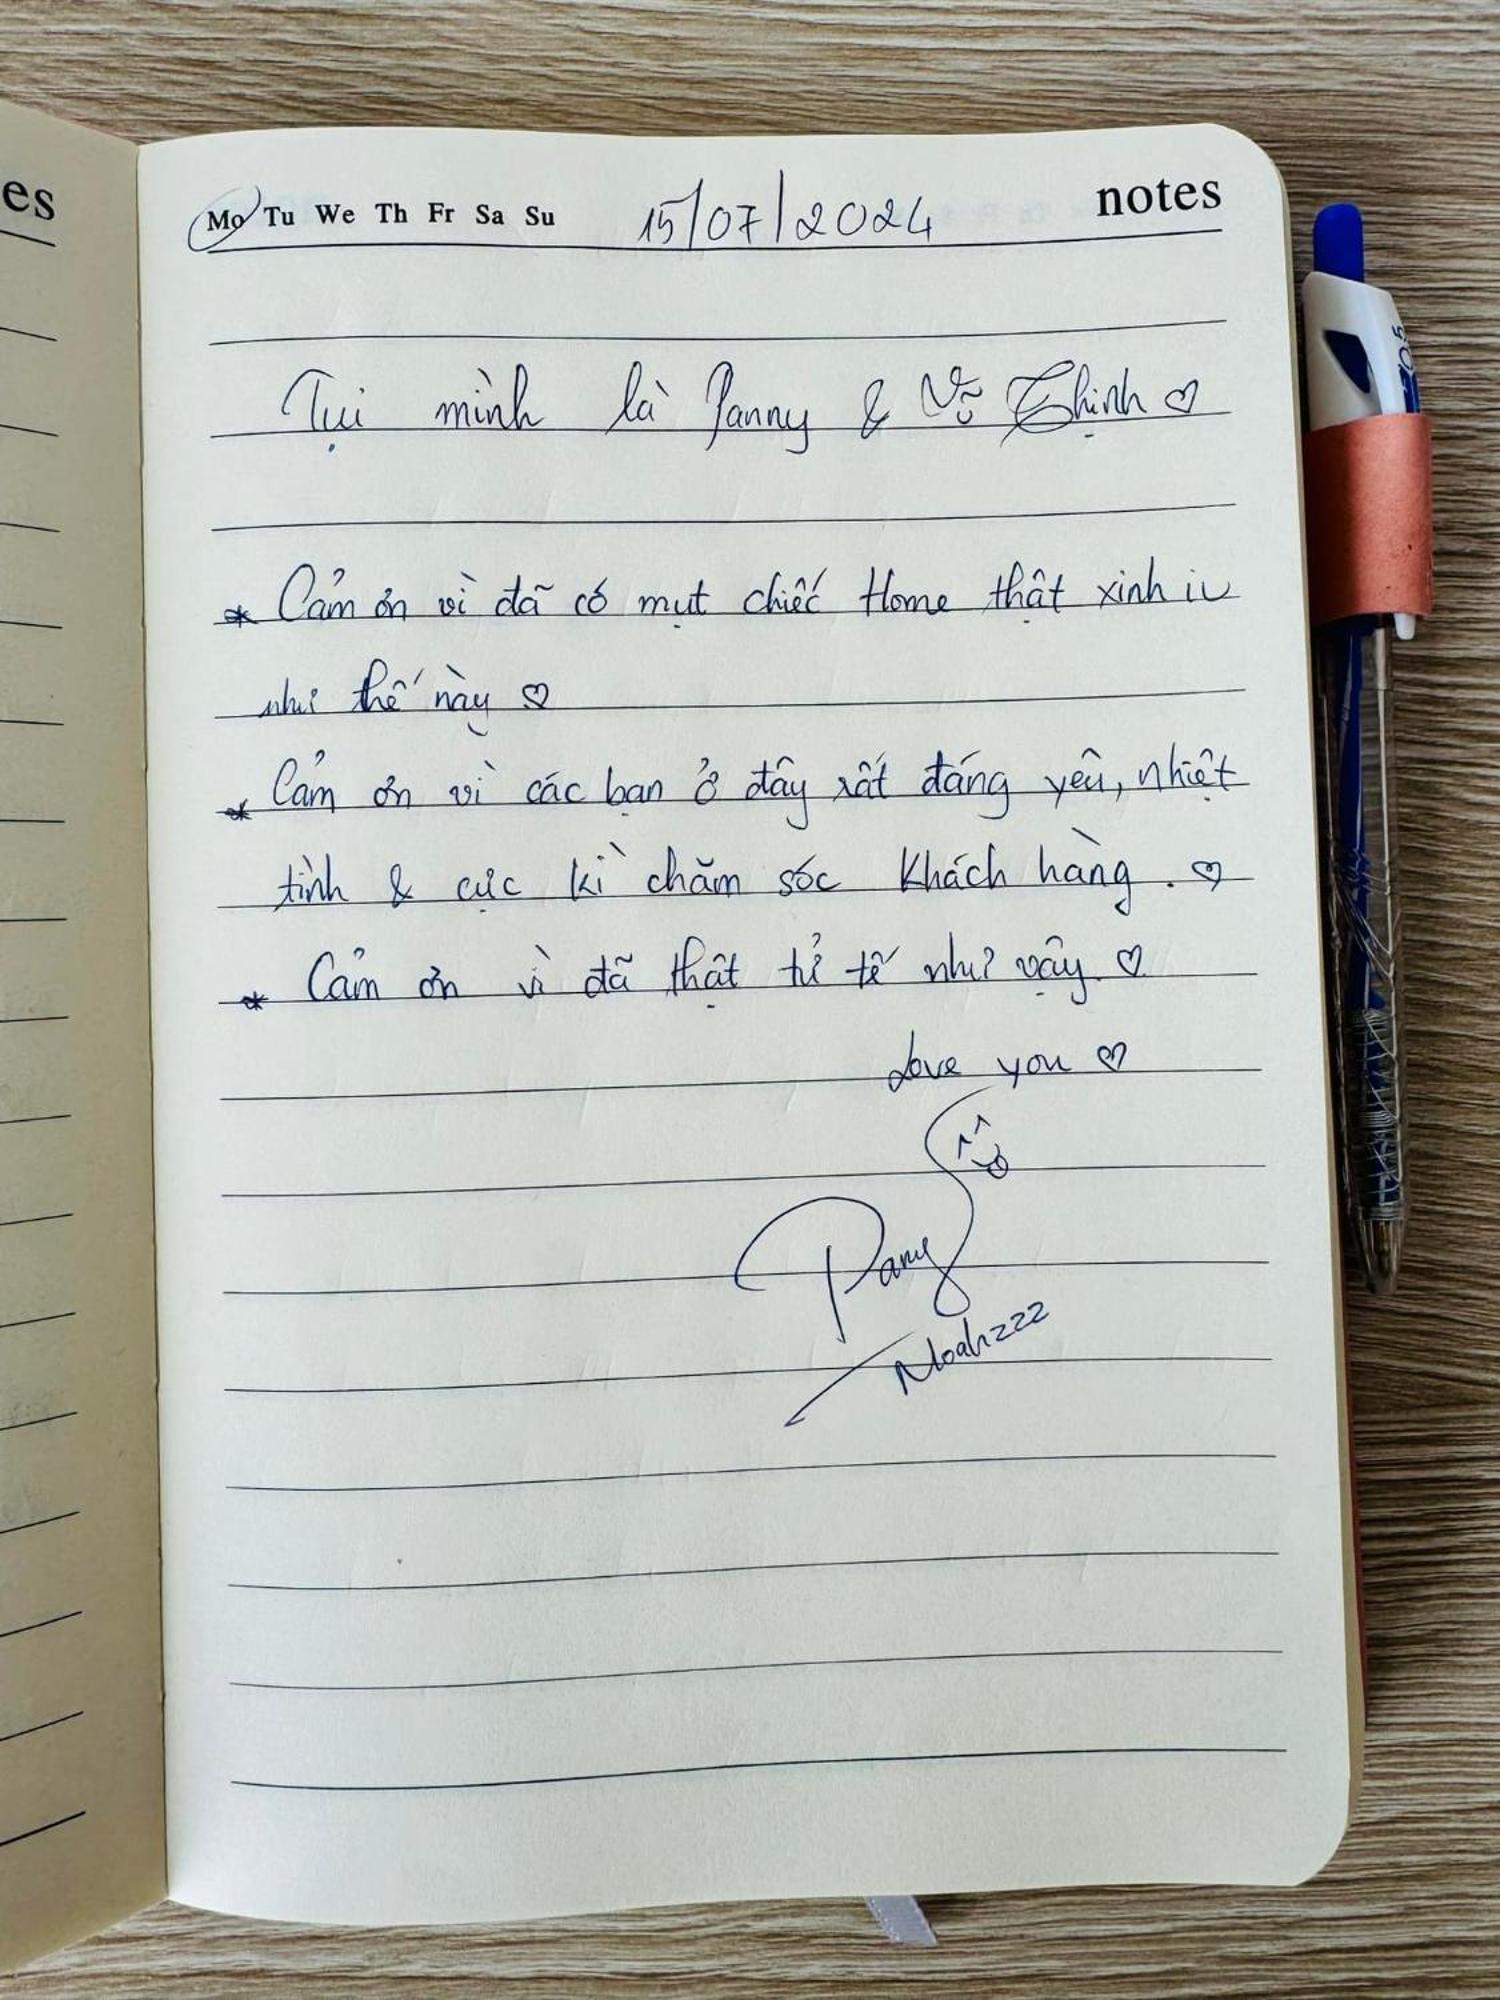 es
Mo Tu We Th Fr Sa Su 15/07/2024 notes
Tụi mình là Panny & Vũ Thịnh ♡
* Cảm ơn vì đã có mụt chiếc Home thật xinh iu
như thế này ♡
* Cảm ơn vì các bạn ở đây rất đáng yêu, nhiệt
tình & cực kì chăm sóc khách hàng. ♡
* Cảm ơn vì đã thật tử tế như vậy. ♡
Love you ♡
Pany
Noahzzz
0.5